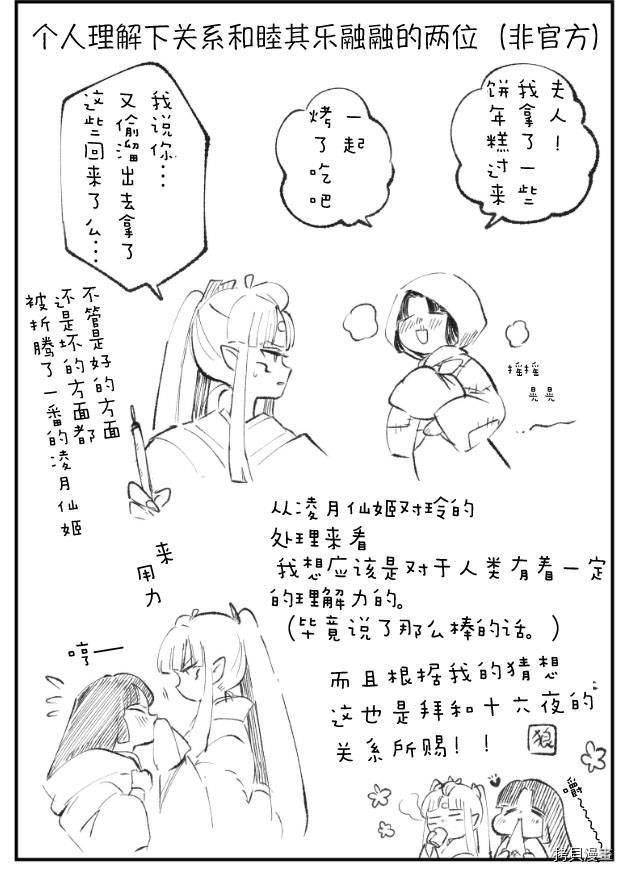 个人理解下关系和睦其乐融融的两位（非官方）
夫人！
我拿了一些
饼年糕过来
一起
烤了吃吧
我说你…
又偷溜出去拿了
这些回来了么…
摇摇
晃晃
不管是好的方面
还是坏的方面都
被折腾了一番的凌月仙姬
从凌月仙姬对玲的
处理来看
我想应该是对于人类有着一定
的理解力的。
（毕竟说了那么棒的话。）
来
用力
哼——
而且根据我的猜想
这也是拜和十六夜的
关系所赐！！
狼
嚼~~~
拷贝漫画